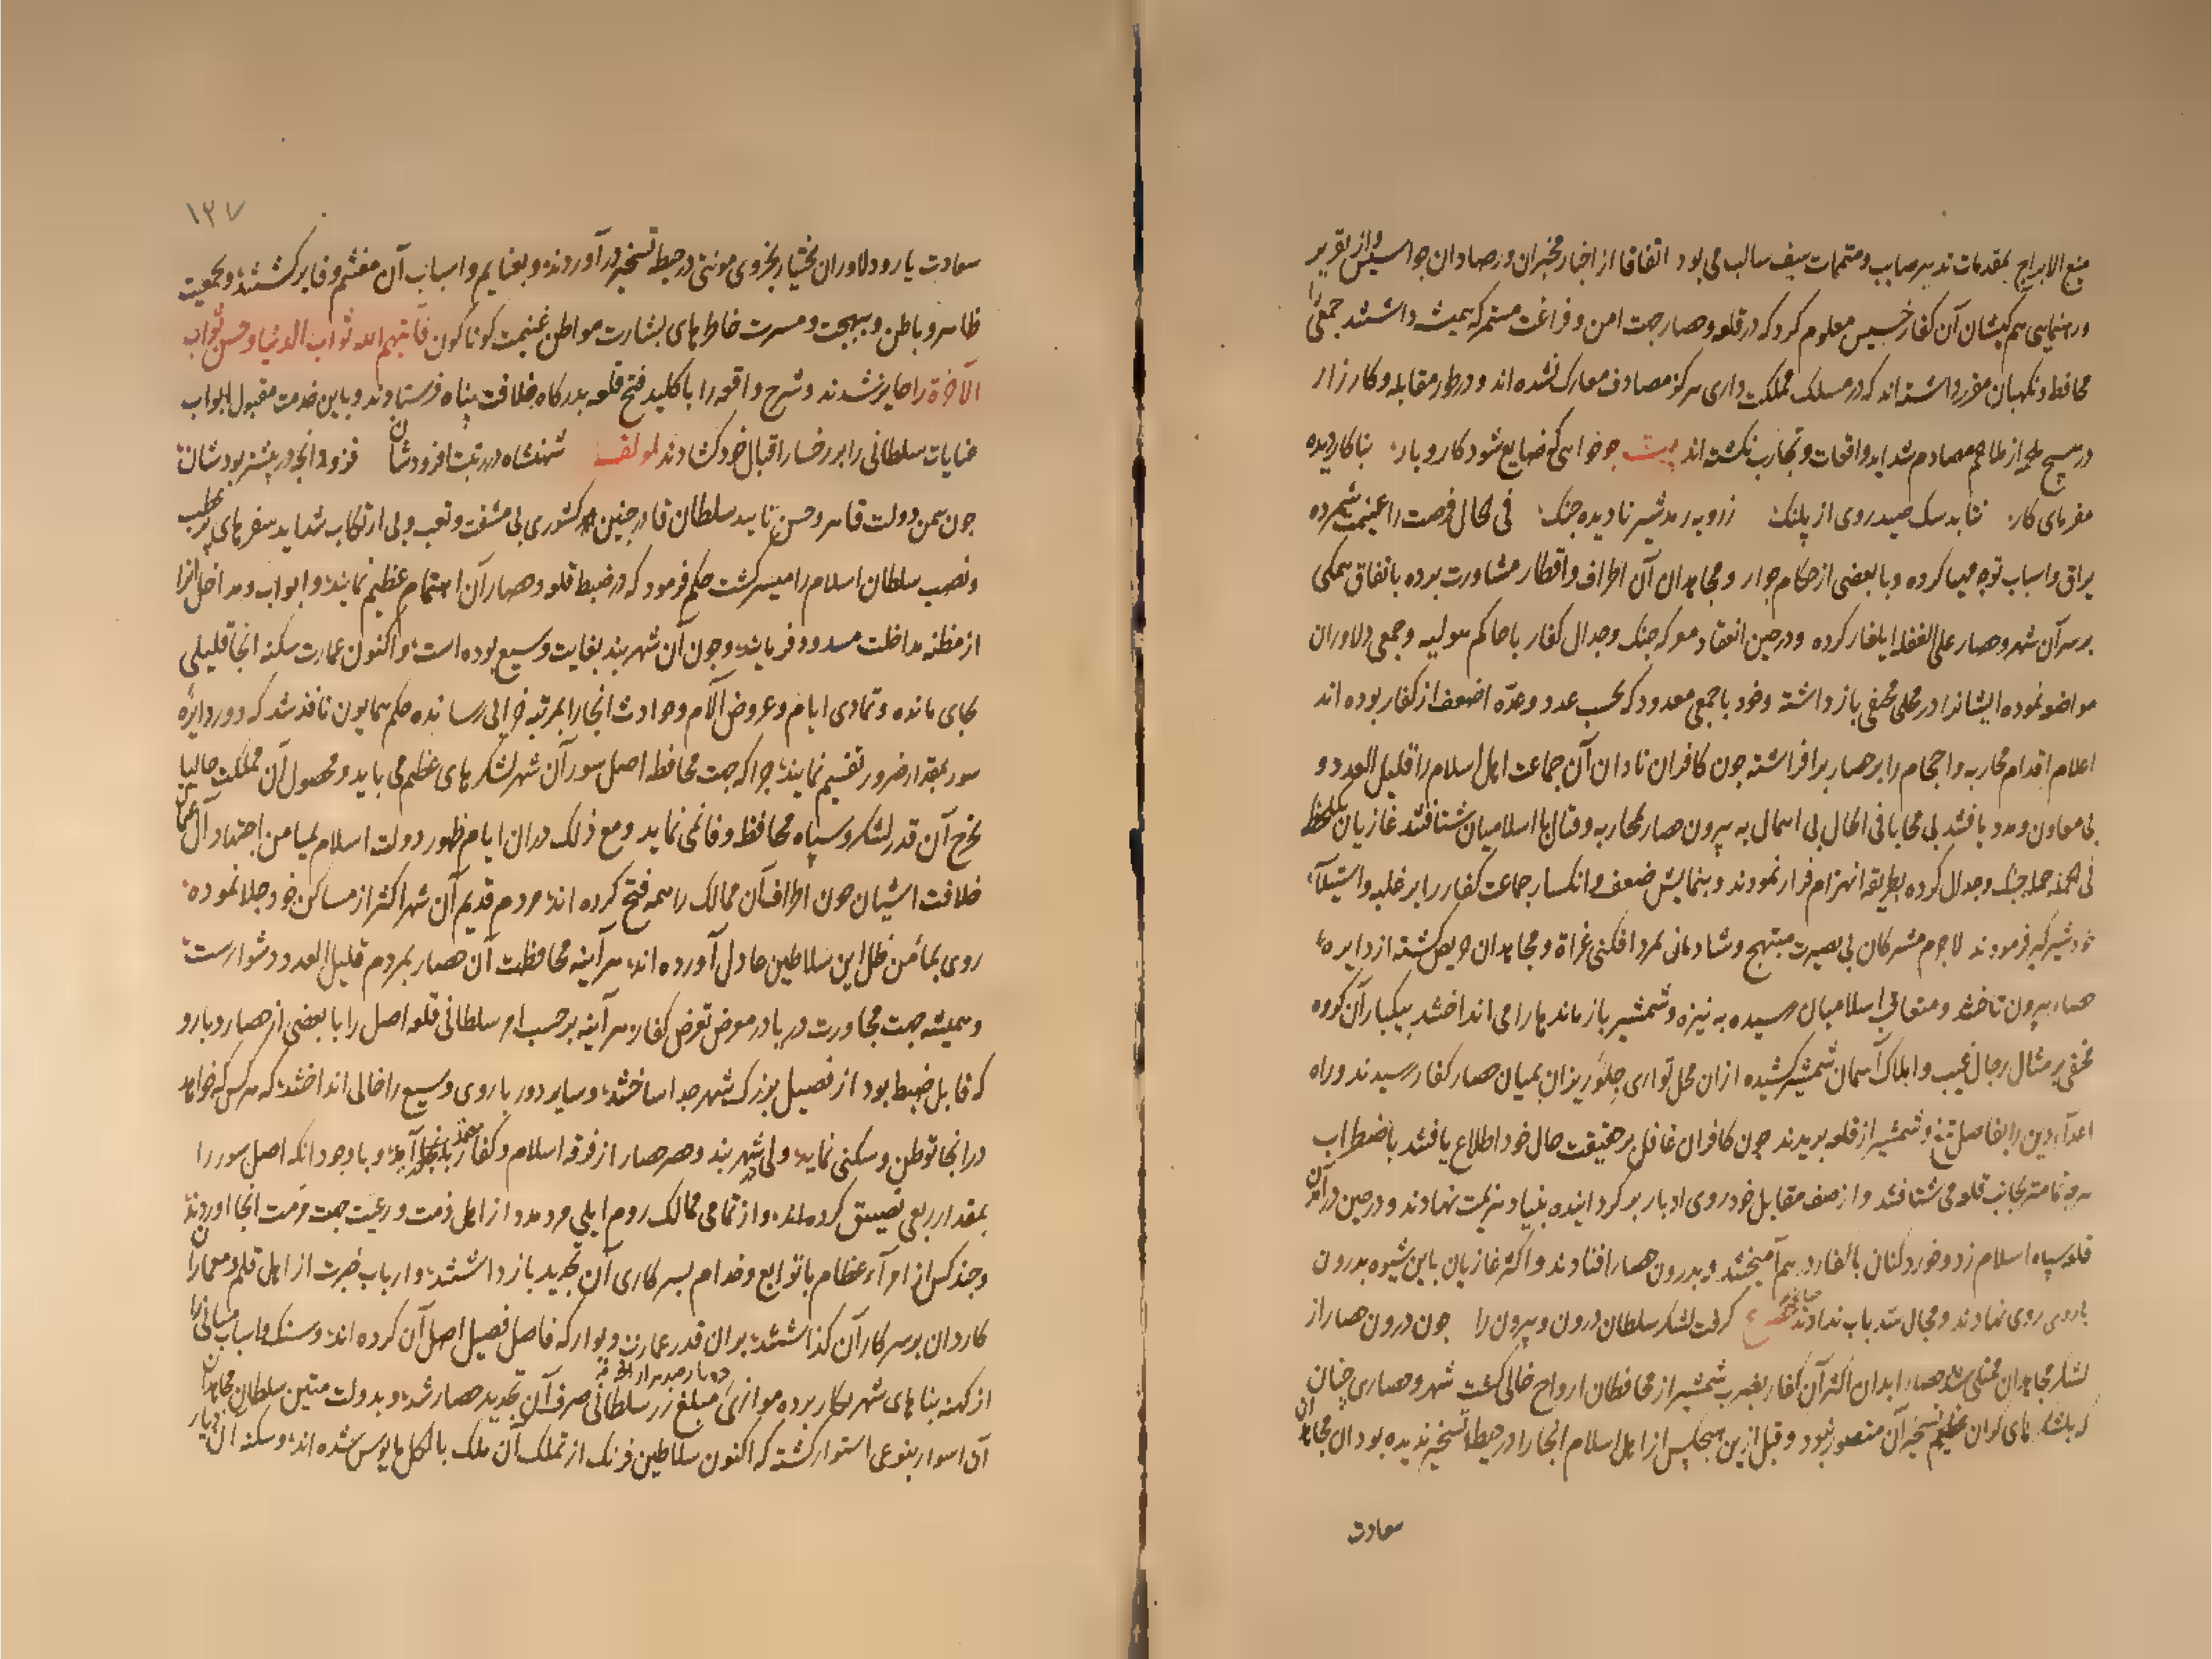 منیع الابراج بمقدمات تدبیر صایب و متممات سیف سالب می بود اتفاقا از اخبار مخبران و رصادان جواسیس و از تقریر
و رهنمایی هم کیشان آن کفار خسیس معلوم کرد که در قلعه و حصار جهت امن و فراغت مستمر که همیشه داشتند جمعی را
محافظ و نکهبان مقرر داشته اند که در مسلک مملکت داری هرکز مصادف معارک نشده اند و در طور مقابله و کارزار
در هیچ ملحمه از ملاحم مصادم شداید واقعات و تجارب نکشته اند بیت جو خواهی که ضایع شود کاروبار بنا کاردیده
مفرمای کار نتابد سک صید روی از پلنک ز روبه رمد شیر نادیده جنک فی الحال فرصت را غنیمت شمرده
یراق و اسباب توجه مهیا کرده و با بعضی از حکام جوار و مجاهدان آن اطراف و اقطار مشاورت برده باتفاق همکی
بر سر آن شهر و حصار علی الغفله ایلغار کرده و در حین انعقاد معرکه جنک و جدال کفار با حاکم مولیه و جمعی دلاوران
مواضعه نموده ایشانرا در محلی مخفی باز داشته و خود با جمعی معدود که بحسب عدد و عدّه اضعف از کفار بوده اند
اعلام اقدام محاربه و احجام را بر حصار بر افراشته جون کافران نادان آن جماعت اهل اسلام را قلیل العدد و
بی معاون و مدد یافتند بی محابا فی الحال بی امهال به بیرون حصار بمحاربه و قتال با اسلامیان شتافتند غازیان یک لحظه
فی الجمله جنک و جدال کرده بطریقه انهزام فرار نمودند و بنمایش ضعف و انکسار جماعت کفار را بر غلبه و استیلاء
خود شیرکیر فرمودند لاجرم مشرکان بی بصیرت مبتهج و شادمانی بمرد افکنی غزاة و مجاهدان حریص کشته از دایره
حصار بیرون تاختند و متعاقب اسلامیان رسیده به نیزه و شمشیر باز ماندها را می انداختند بیکبار آن کروه
مخفی بر مثال رجال غیب و ابلاک آسمان شمشیر کشیده از ان محل تواری جلوریزان بمیان حصار کفار رسیدند و راه
اعداء دین را بفاصل تیغ و شمشیر از قلعه بریدند جون کافران غافل بر حقیقت حال خود اطلاع یافتند باضطراب
هر چه تمامتر بجانب قلعه می شتافتند و از صف مقابل خود روی ادبار بر کردانیده بنیاد هزیمت نهادند و در حین در آمدن
قلعه سپاه اسلام زد و خورد کنان با کفار در هم آمیختند و بدرون حصار افتادند و اکثر غازیان باین شیوه بدرون
باروی روی نهادند و مجال سد باب ندادند مصرع کرفت لشکر سلطان درون و بیرون را جون درون حصار از
لشکر مجاهدان ممتلی شد و حصار ابدان اکثر آن کفار بضرب شمشیر از محافظان ارواح خالی کشت شهر و حصاری چنان
که بلشکرهای کران عظیم تسخیر آن متصور نبود و قبل ازین هیچکس از اهل اسلام انجا را در حیطه تسخیر ندیده بود ان مجاهدان
سعادت
۱۳۷
سعادت یار و دلاوران بختیار بخروی مونتی در حیطه تسخیر در آوردند و بغنایم و اسباب آن مغتنم و فایز کشتند و بجمعیت
ظاهر و باطن و بهجت و مسرت خاطرهای بشارت مواطن غنیمت کوناکون فآتیهم الله ثواب الدنیا و حسن ثواب
الآخرة را حایز شدند و شرح واقعه را با کلید فتح قلعه بدرکاه خلافت پناه فرستادند و باین خدمت مقبول ابواب
عنایات سلطانی را بر رخسار اقبال خود کشادند لمولفه شهنشاه در رتبت افزودشان فزود انجه در پیشتر بودشان
جون بیمن دولت قاهر و حسن تایید سلطان قادر چنین کشوری بی مشقت و تعب و بی ارتکاب شداید سفرهای پر خطب
و نصب سلطان اسلام را میسر کشت حکم فرمود که در ضبط قلعه و حصار آن اهتمام عظیم نمایند و ابواب و مداخل انرا
از مظنه مداخلت مسدود فرمایند و جون آن شهر بند بغایت وسیع بوده است و اکنون عمارت سکنه انجا قلیلی
بجای مانده و تمادی ایام و عروض آلام و حوادث انجا را بمرتبه خرابی رسانده حکم همایون نافذ شد که دور دایره
سور بمقدار ضرور تقسیم نمایند جرا که جهت محافظه اصل سور آن شهر لشکرهای عظیم می باید و محصول آن مملکت حالیا
بخرج آن قدر لشکر و سپاه محافظ وفا نمی نماید و مع ذلک در ان ایام ظهور دولت اسلام بمیامن اجتهاد آل عثمان
خلافت اشیان جون اطراف آن ممالک را همه فتح کرده اند مردم قدیم آن شهر اکثر از مساکن خود جلا نموده
روی بمأمن ظل این سلاطین عادل آورده اند هر آینه محافظت آن حصار بمردم قلیل العدد دشوارست
و همیشه جهت مجاورت دریا در معرض تعرض کفار هر آینه بر حسب امر سلطانی قلعه اصل را با بعضی از حصار و بارو
که قابل ضبط بود از فصیل بزرک شهر جدا ساختند و سایر دور باروی وسیع را خالی انداختند که هرکس که خواهد
در انجا توطن و سکنی نماید ولی شهر بند و حصر حصار از فرقه اسلام و کفار و با وجود انکه اصل سور را
بمقدار ربعی تضییق کرده اند و از تمامی ممالک روم ایلی مرد مدد از اهل ذمت و رعیت جهت مرمت انجا اوردند
و جند کس از امرآء عظام با توابع و خدام بسرکاری آن تجدید باز داشتند و ارباب خبرت از اهل قلم و معماران
کاردان بر سر کار آن کذاشتند بر ان قدر عمارت و دیوار که فاصل فصیل اصل آن کرده اند و سنک و اسباب مبانی را
از کهنه بناهای شهر بکار برده موازی مبلغ زر سلطانی صرف آن تجدید حصار شد و بدولت متین سلطان مجاهدان
آن اسوار بنوعی استوار کشته که اکنون سلاطین فرنک از تملک آن ملک بالکل مایوس شده اند و سکنه ان دیار